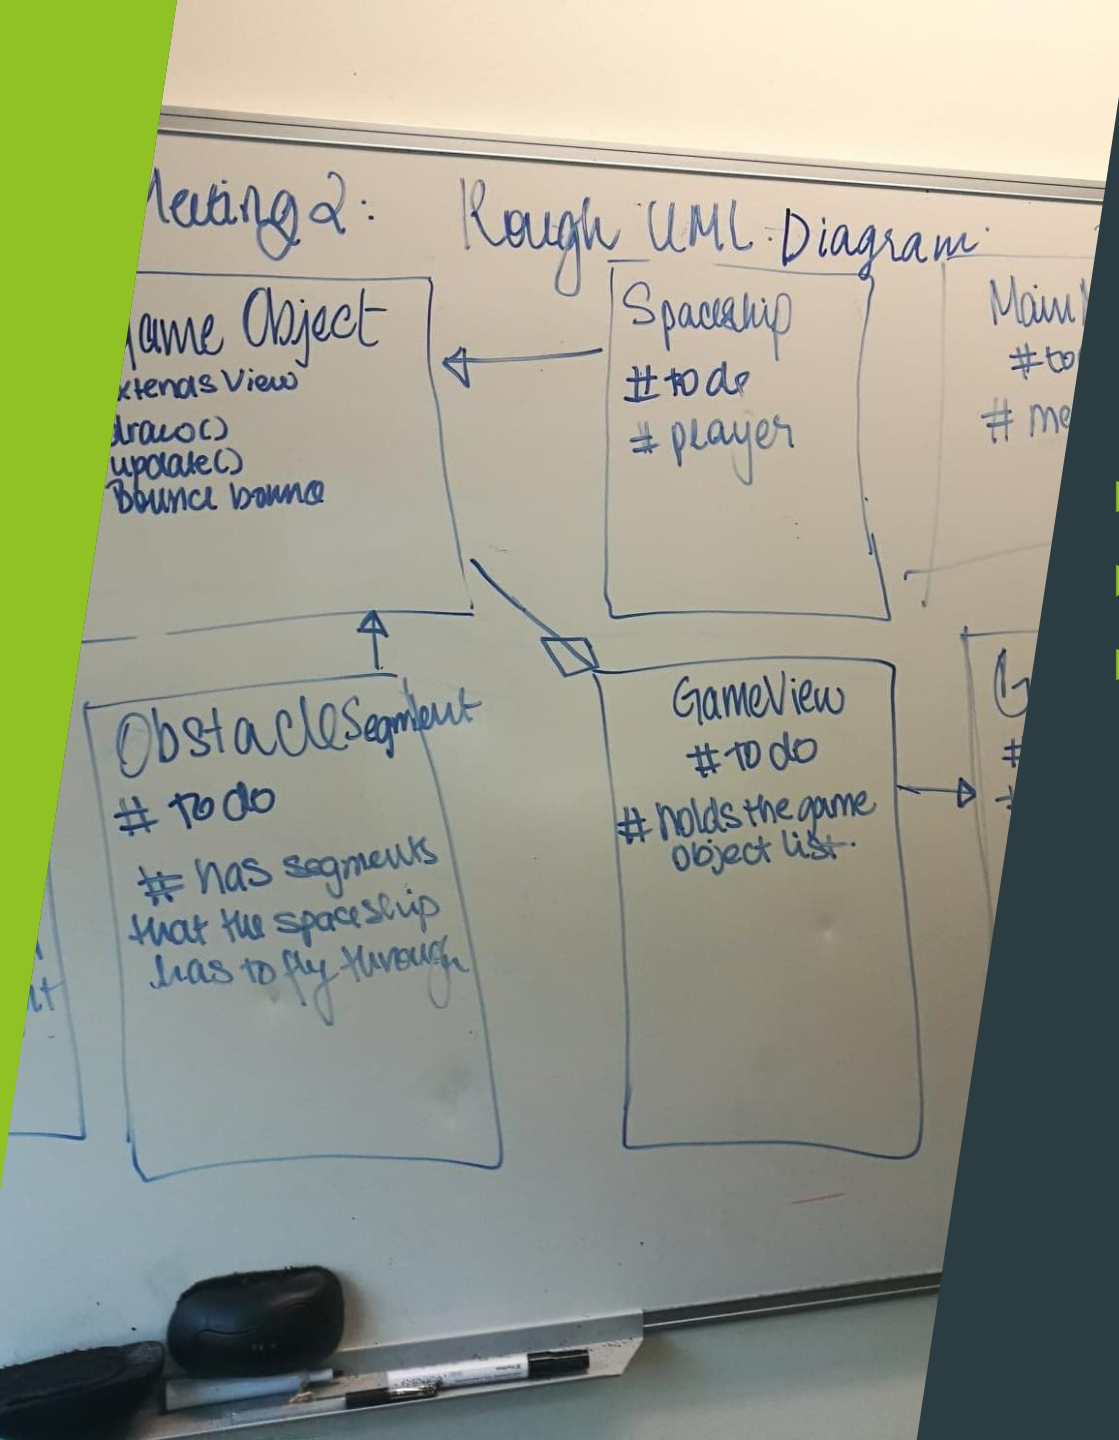 Meeting 2: Rough UML Diagram
Game Object
extends View
draw()
update()
Bounce bounce
Spaceship
# to do
# player
Main
# to
# me
ObstacleSegment
# to do
# has segments
that the spaceship
has to fly through
GameView
# to do
# holds the game
object list.
G
#